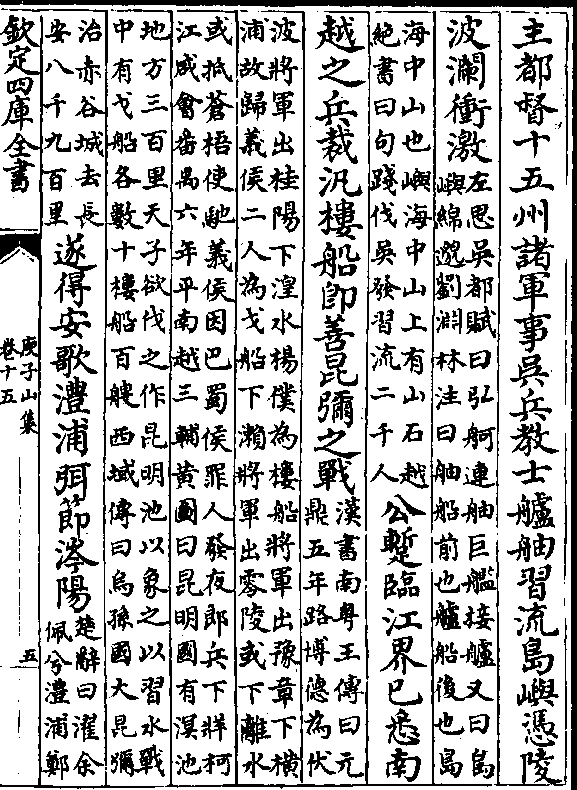 主都督十五州諸軍事吳兵教士艫舳習流島嶼憑陵
波瀾衝激
左思吳都賦曰弘舸連舳巨艦接艫又曰島
嶼綿邈劉淵林注曰舳船前也艫船後也島
海中山也嶼海中山上有山石越
絶書曰句踐伐吳發習流二千人
公蹔臨江界已悉南
越之兵裁汎樓船即善昆彌之戰
漢書南粤王傳曰元
鼎五年路博德為伏
波將軍出桂陽下湟水楊僕為樓船將軍出豫章下横
浦故歸義侯二人為戈船下瀨將軍出零陵或下離水
或抵蒼梧使馳義侯因巴蜀侯罪人發夜郎兵下牂柯
江咸會番禺六年平南越三輔黄圖曰昆明國有滇池
地方三百里天子欲伐之作昆明池以象之以習水戰
中有戈船各數十樓船百艘西域傳曰烏孫國大昆彌
治赤谷城去長
安八千九百里
遂得安歌澧浦弭節涔陽
楚辭曰濯余
佩兮澧浦鄭
欽定四庫全書
庚子山集
卷十五
五